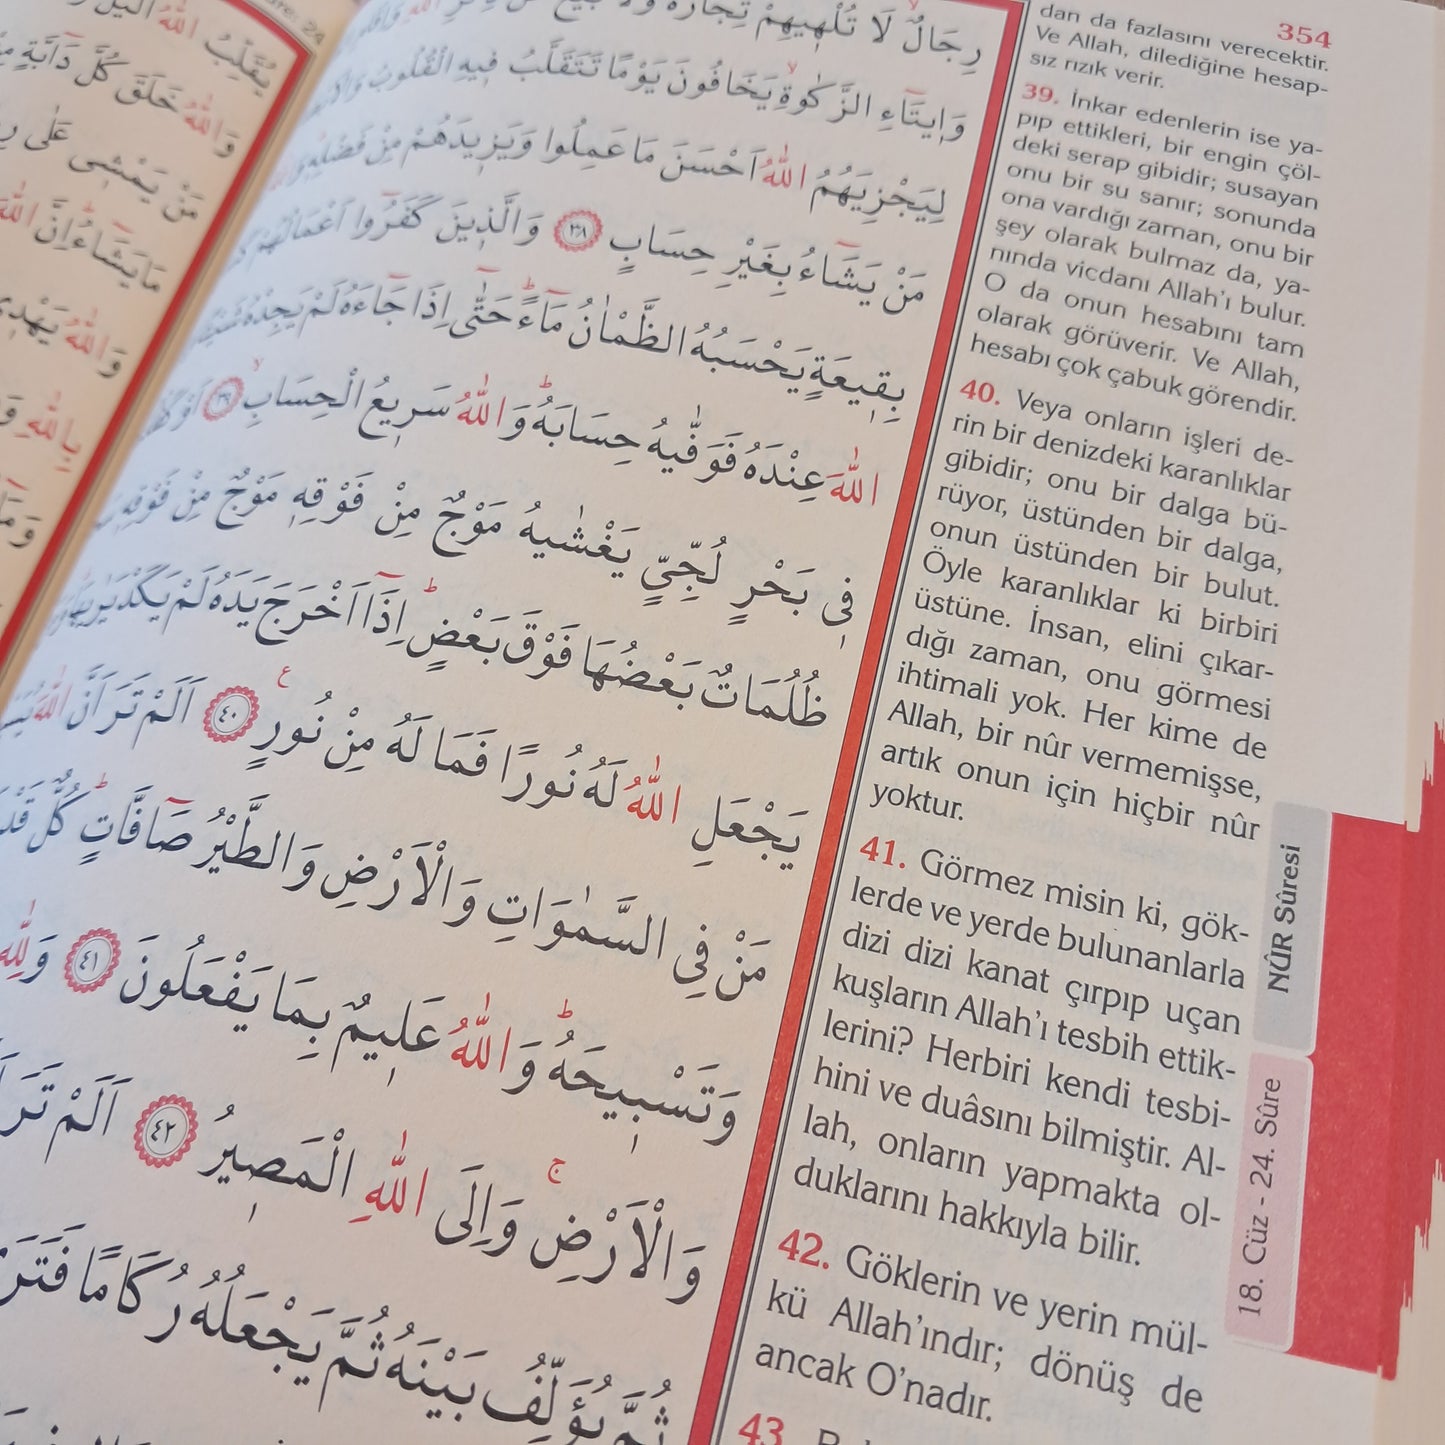 رِجَالٌ لَا تُلْهٖيهِمْ تِجَارَةٌ وَلَا بَيْعٌ عَنْ ذِكْرِ اللّٰهِ
وَاٖيتَٓاءِ الزَّكٰوةِۙ يَخَافُونَ يَوْمًا تَتَقَلَّبُ فٖيهِ الْقُلُوبُ
لِيَجْزِيَهُمُ اللّٰهُ اَحْسَنَ مَا عَمِلُوا وَيَزٖيدَهُمْ مِنْ فَضْلِهٖ
مَنْ يَشَٓاءُ بِغَيْرِ حِسَابٍ ﴿٣٨﴾ وَالَّذٖينَ كَفَرُٓوا اَعْمَالُهُمْ
بِقٖيعَةٍ يَحْسَبُهُ الظَّمْاٰنُ مَٓاءًؕ حَتّٰٓى اِذَا جَٓاءَهُ لَمْ يَجِدْهُ
اللّٰهَ عِنْدَهُ فَوَفّٰيهُ حِسَابَهُؕ وَاللّٰهُ سَرٖيعُ الْحِسَابِۙ ﴿٣٩﴾
فٖى بَحْرٍ لُجِّىٍّ يَغْشٰيهُ مَوْجٌ مِنْ فَوْقِهٖ مَوْجٌ مِنْ فَوْقِهٖ
ظُلُمَاتٌ بَعْضُهَا فَوْقَ بَعْضٍؕ اِذَٓا اَخْرَجَ يَدَهُ لَمْ يَكَدْ يَرٰيهَا
يَجْعَلِ اللّٰهُ لَهُ نُورًا فَمَا لَهُ مِنْ نُورٍ ﴿٤٠﴾ اَلَمْ تَرَ اَنَّ اللّٰهَ
مَنْ فِى السَّمٰوَاتِ وَالْاَرْضِ وَالطَّيْرُ صَٓافَّاتٍؕ كُلٌّ قَدْ
وَتَسْبٖيحَهُؕ وَاللّٰهُ عَلٖيمٌ بِمَا يَفْعَلُونَ ﴿٤١﴾ وَلِلّٰهِ
وَالْاَرْضِۚ وَاِلَى اللّٰهِ الْمَصٖيرُ ﴿٤٢﴾ اَلَمْ تَرَ
ثُمَّ يُؤَلِّفُ بَيْنَهُ ثُمَّ يَجْعَلُهُ رُكَامًا فَتَرَى
354
dan da fazlasını verecektir.
Ve Allah, dilediğine hesap-
sız rızık verir.
39. İnkar edenlerin ise ya-
pıp ettikleri, bir engin çöl-
deki serap gibidir; susayan
onu bir su sanır; sonunda
ona vardığı zaman, onu bir
şey olarak bulmaz da, ya-
nında vicdanı Allah'ı bulur.
O da onun hesabını tam
olarak görüverir. Ve Allah,
hesabı çok çabuk görendir.
40. Veya onların işleri de-
rin bir denizdeki karanlıklar
gibidir; onu bir dalga bü-
rüyor, üstünden bir dalga,
onun üstünden bir bulut.
Öyle karanlıklar ki birbiri
üstüne. İnsan, elini çıkar-
dığı zaman, onu görmesi
ihtimali yok. Her kime de
Allah, bir nûr vermemişse,
artık onun için hiçbir nûr
yoktur.
41. Görmez misin ki, gök-
lerde ve yerde bulunanlarla
dizi dizi kanat çırpıp uçan
kuşların Allah'ı tesbih ettik-
lerini? Herbiri kendi tesbi-
hini ve duâsını bilmiştir. Al-
lah, onların yapmakta ol-
duklarını hakkıyla bilir.
42. Göklerin ve yerin mül-
kü Allah'ındır; dönüş de
ancak O'nadır.
43.
NÛR Sûresi
18. Cüz - 24. Sûre